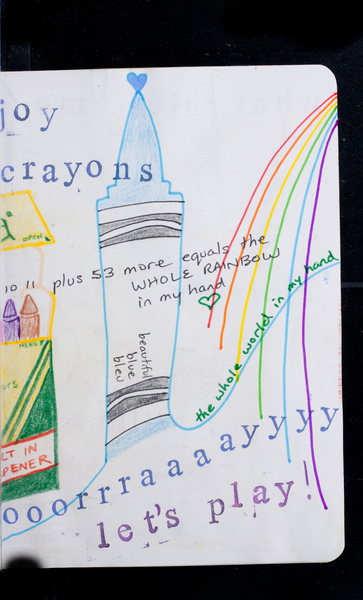 joy
crayons
OPEN
10 11
plus 53 more equals the
WHOLE RAINBOW
in my hand
HERE
beautiful
blue
bleu
the whole world in my hand
ors
LT IN
PENER
ooorrraaaaayyyy
let's play!